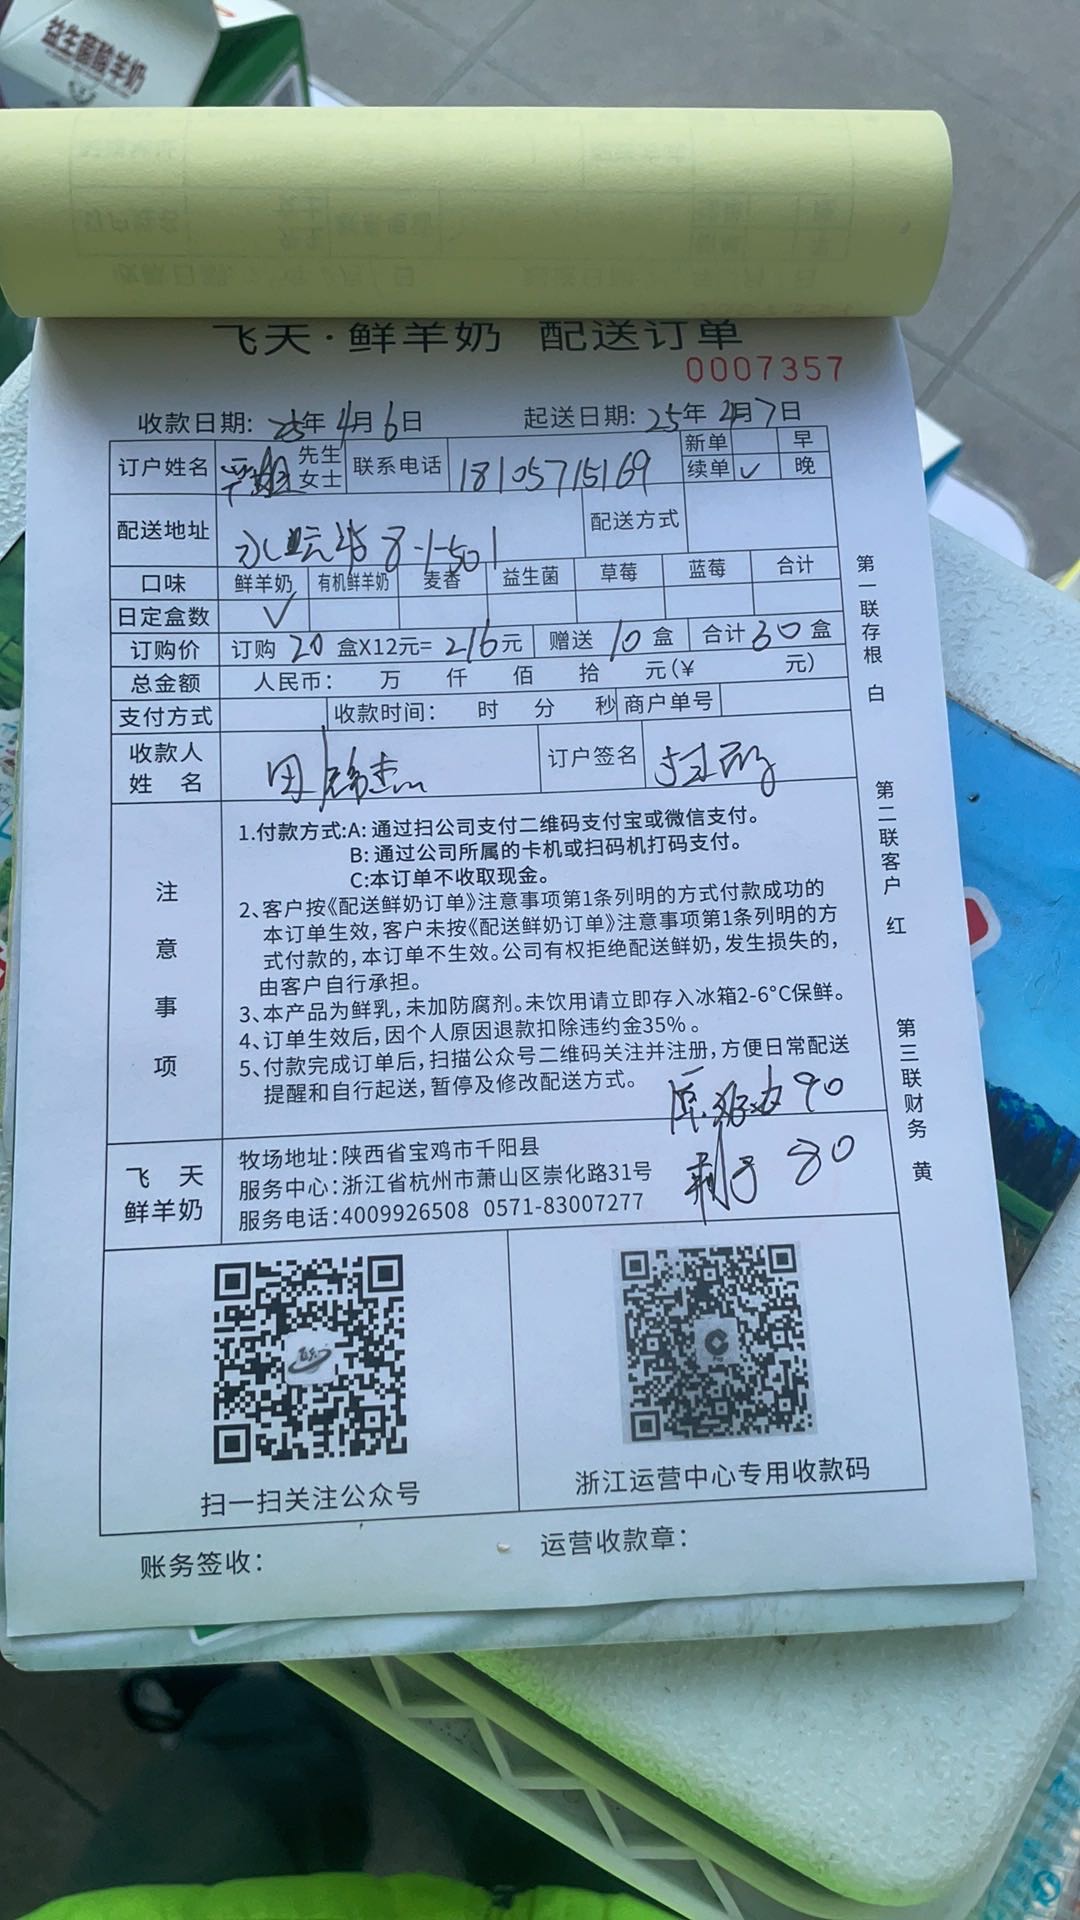 益生菌酸羊奶
飞天·鲜羊奶 配送订单
0007357
收款日期: 25年4月6日 起送日期: 25年4月7日
订户姓名 先生 女士 联系电话 18105715169 新单 续单 ✓ 早 晚
配送地址 8-1-501 配送方式
口味 鲜羊奶 有机鲜羊奶 麦香 益生菌 草莓 蓝莓 合计
日定盒数 ✓
订购价 订购 20 盒X12元= 216元 赠送 10 盒 合计 30 盒
总金额 人民币: 万 仟 佰 拾 元(¥ 元)
支付方式 收款时间: 时 分 秒 商户单号
收款人姓名 田 订户签名
注意事项
1.付款方式:A: 通过扫公司支付二维码支付宝或微信支付。
B: 通过公司所属的卡机或扫码机打码支付。
C:本订单不收取现金。
2、客户按《配送鲜奶订单》注意事项第1条列明的方式付款成功的
本订单生效,客户未按《配送鲜奶订单》注意事项第1条列明的方
式付款的,本订单不生效。公司有权拒绝配送鲜奶,发生损失的,
由客户自行承担。
3、本产品为鲜乳,未加防腐剂。未饮用请立即存入冰箱2-6°C保鲜。
4、订单生效后,因个人原因退款扣除违约金35%。
5、付款完成订单后,扫描公众号二维码关注并注册,方便日常配送
提醒和自行起送,暂停及修改配送方式。
90
80
飞天鲜羊奶
牧场地址:陕西省宝鸡市千阳县
服务中心:浙江省杭州市萧山区崇化路31号
服务电话:4009926508 0571-83007277
扫一扫关注公众号
浙江运营中心专用收款码
账务签收: 运营收款章:
第一联存根 白
第二联客户 红
第三联财务 黄